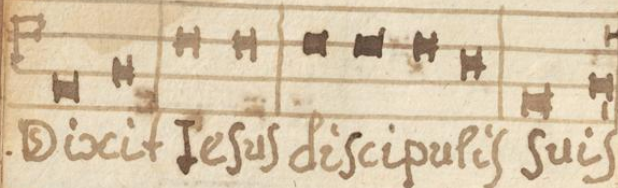 Dixit Iesus discipulis suis